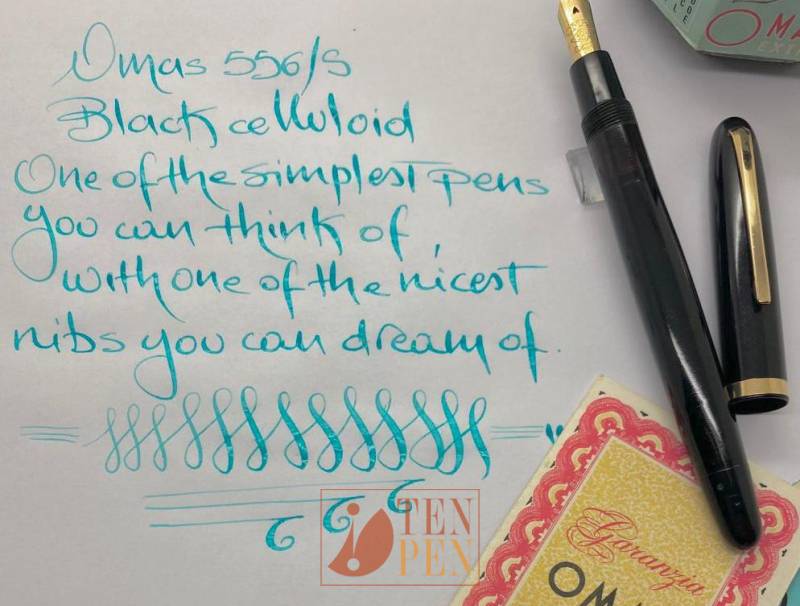 Omas 556/S
Black celluloid
One of the simplest pens
you can think of,
with one of the nicest
nibs you can dream of.
TEN
PEN
Garanzia
OMA
OMA
EXT